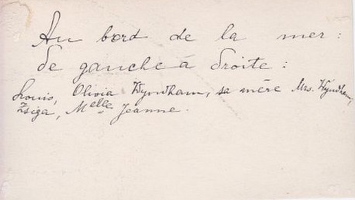 Au bord de la mer :
de gauche à droite :
Louis, Olivia Wyndham, sa mère Mrs. Wyndham,
Ziga, Melle Jeanne.